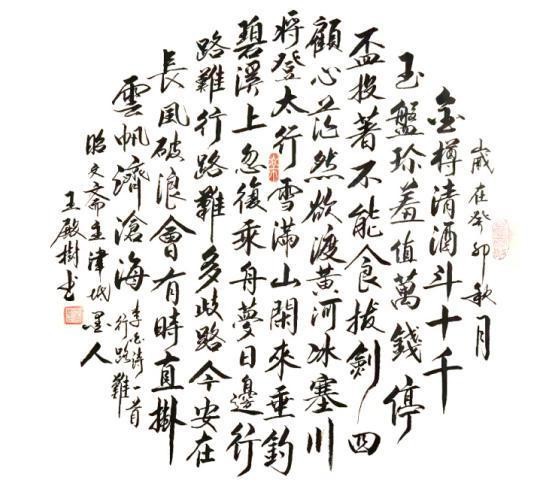 歲在癸卯秋月
金樽清酒斗十千
玉盤珍羞值萬錢停
盃投著不能食拔劍四
顧心茫然欲渡黃河冰塞川
將登太行雪滿山閑來垂釣
碧溪上忽復乘舟夢日邊行
路難行路難多歧路今安在
長風破浪會有時直掛
雲帆濟滄海
李白詩一首
行路難
昭文齋主津城墨人
王殿樹书